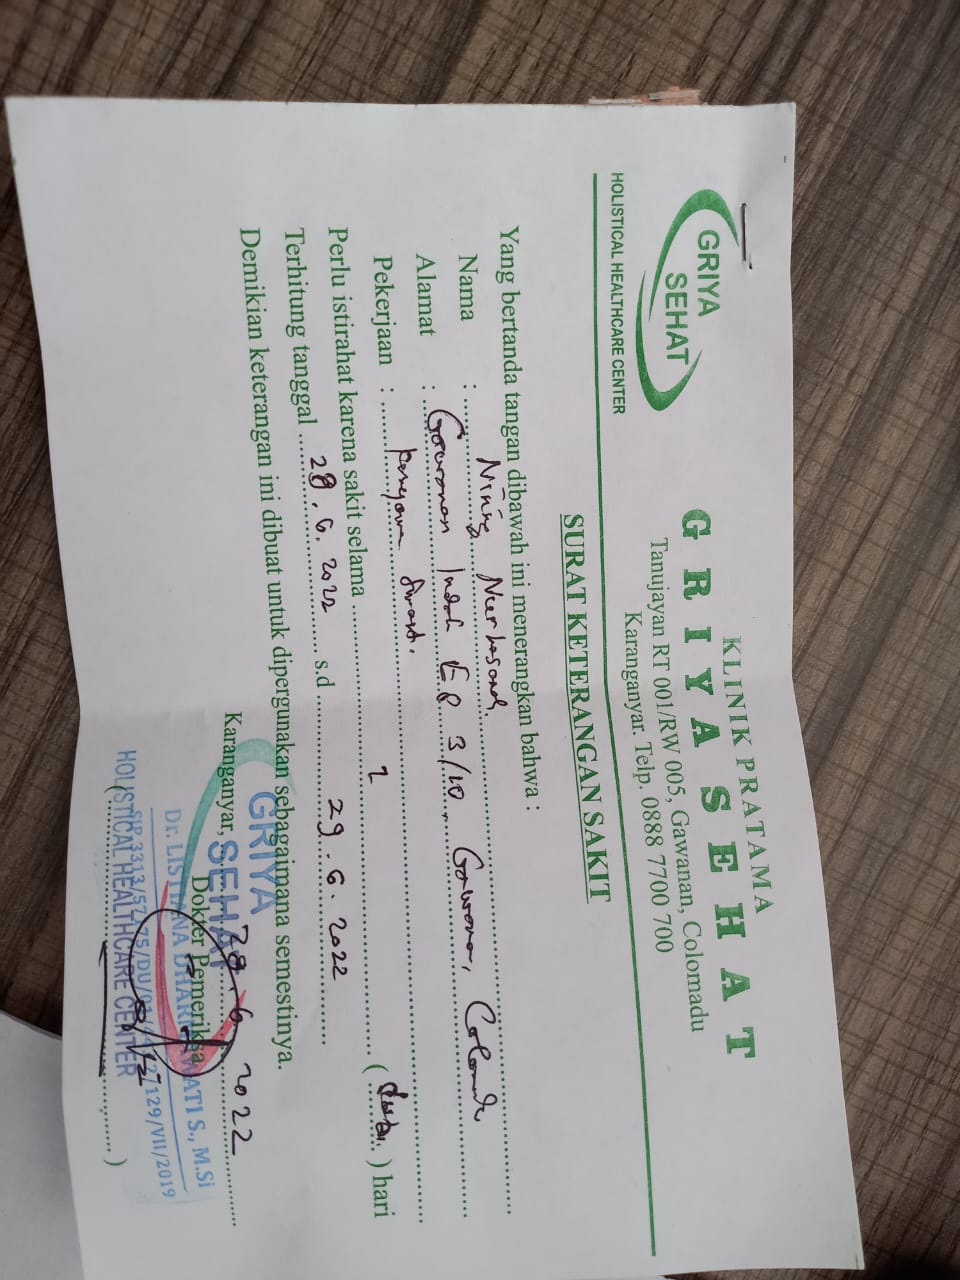 GRIYA
SEHAT
HOLISTICAL HEALTHCARE CENTER
KLINIK PRATAMA
GRIYA SEHAT
Tanujayan RT 001/RW 005, Gawanan, Colomadu
Karanganyar. Telp. 0888 7700 700
SURAT KETERANGAN SAKIT
Yang bertanda tangan dibawah ini menerangkan bahwa :
Nama : Nining Nurhasanah.
Alamat : Gawanan Indah 3/10, Gawanan, Colomadu
Pekerjaan :
Perlu istirahat karena sakit selama 2 (dua) hari
Terhitung tanggal 28.6.2022 s.d 29.6.2022
Demikian keterangan ini dibuat untuk dipergunakan sebagaimana semestinya.
Karanganyar, 28.6.2022
Dokter Pemeriksa
GRIYA
SEHAT
Dr. LISTIANA DHARMAWATI S., M.Si
HOLISTICAL HEALTHCARE CENTER